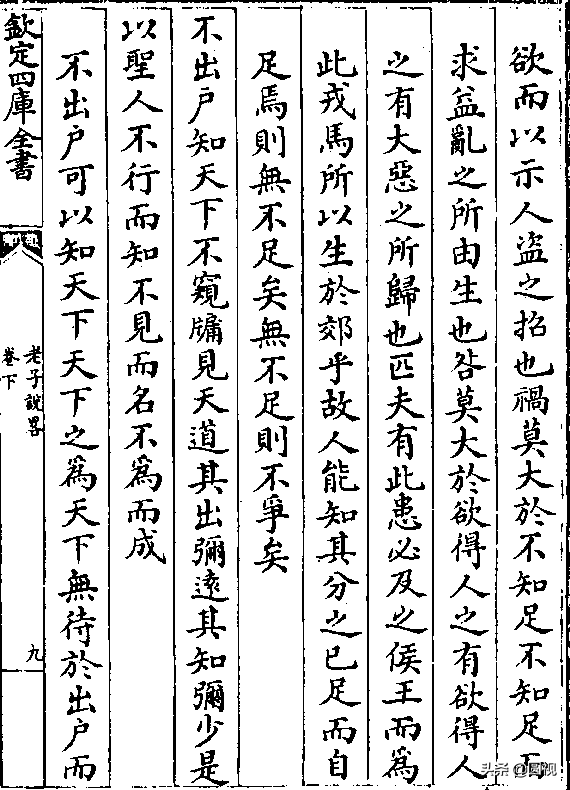 欲而以示人盜之招也禍莫大於不知足不知足而
求益亂之所由生也咎莫大於欲得人之有欲得人
之有大惡之所歸也匹夫有此患必及之侯王而為
此戎馬所以生於郊乎故人能知其分之已足而自
足焉則無不足矣無不足則不爭矣
不出户知天下不窺牖見天道其出彌逺其知彌少是
以聖人不行而知不見而名不為而成
不出户可以知天下天下之為天下無待於出户而
欽定四庫全書
老子說畧
卷下
九
头条 @圆视